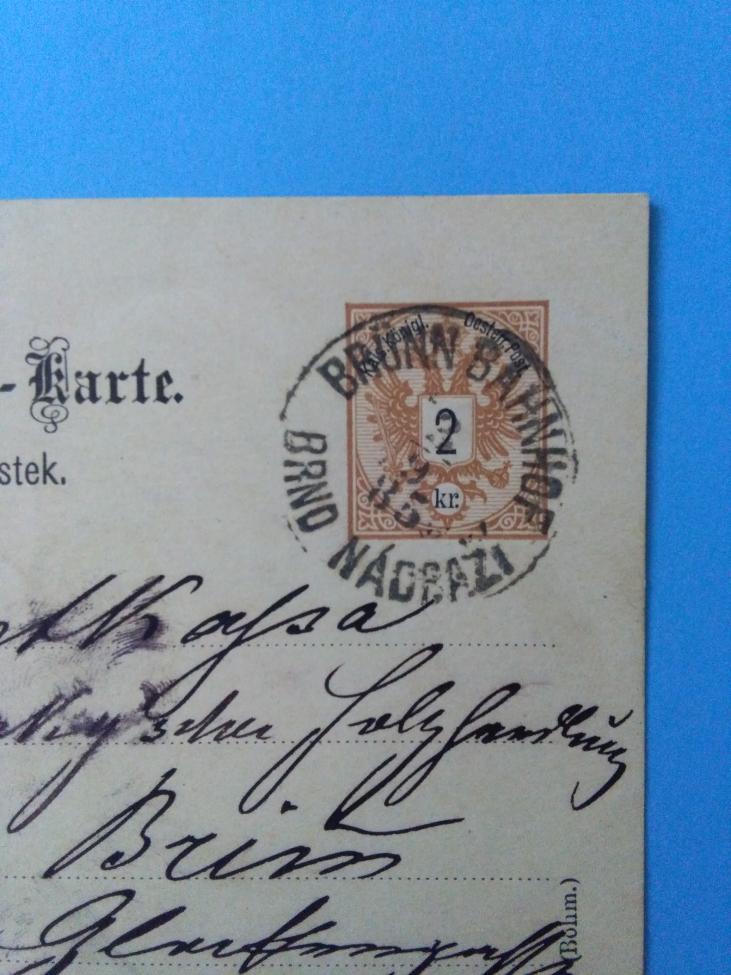 -Karte.
stek.
Kais. Königl. Oesterr. Post.
2
kr.
BRÜNN BAHNHOF
85
BRNO NÁDRAŽI
Kassa
'scher Holzhandlung
Brünn
(Böhm.)